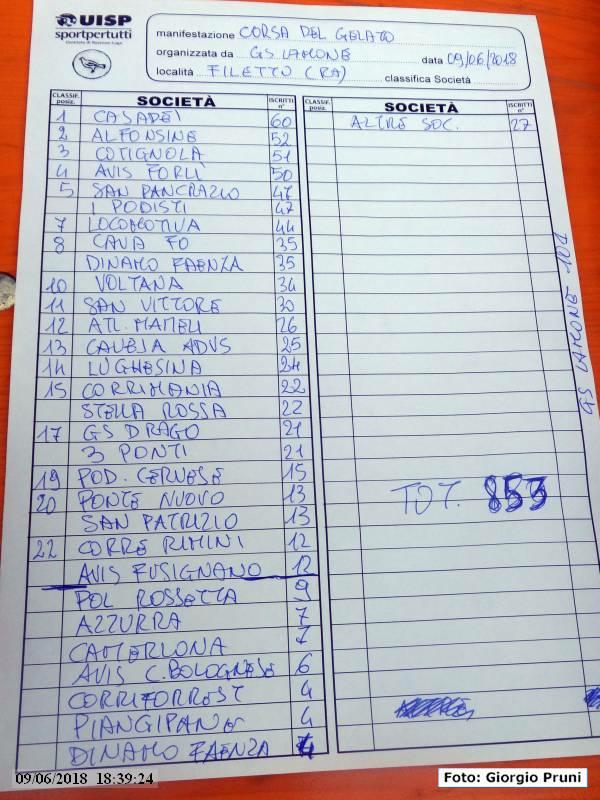 UISP
sportpertutti
manifestazione CORSA DEL GELATO
organizzata da GS LAMONE data 09/06/2018
località FILETTO (RA) classifica Società
CLASSIF. posiz. SOCIETÀ ISCRITTI n°
1 CASADEI 60
2 ALFONSINE 52
3 COTIGNOLA 51
4 AVIS FORLÌ 50
5 SAN PANCRAZIO 47
I PODISTI 47
7 LOCOMOTIVA 44
8 CAVA FO 35
DINAMO FAENZA 35
10 VOLTANA 34
11 SAN VITTORE 30
12 ATL. MAMELI 26
13 CAVEJA ADVS 25
14 LUGHESINA 24
15 CORRIMANIA 22
STELLA ROSSA 22
17 GS DRAGO 21
3 PONTI 21
19 POD. CERVESE 15
20 PONTE NUOVO 13
SAN PATRIZIO 13
22 CORRE RIMINI 12
AVIS FUSIGNANO 12
POL ROSSETTA 9
AZZURRA 7
CAMERLONA 7
AVIS C. BOLOGNESE 6
CORRIFORREST 4
PIANGIPANE 4
DINAMO FAENZA 4
CLASSIF. posiz. SOCIETÀ ISCRITTI n°
ALTRE SOC. 27
TOT. 853
GS LAMONE 101
09/06/2018 18:39:24
Foto: Giorgio Pruni